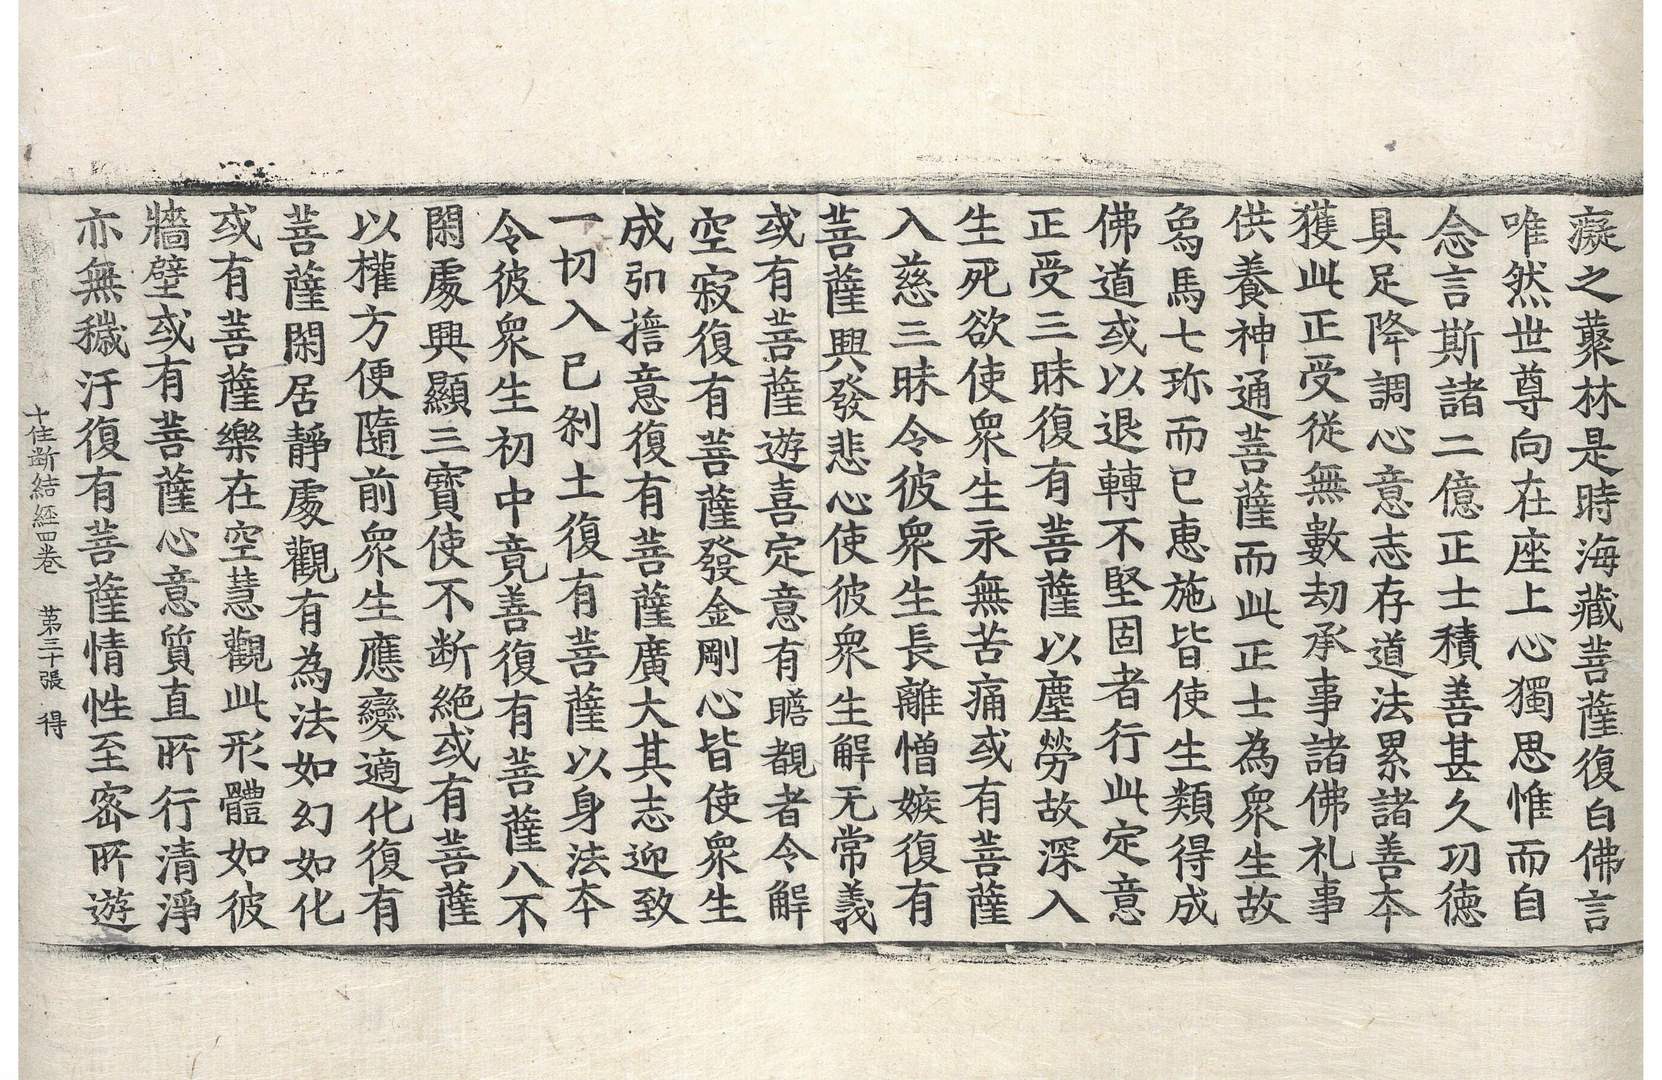 癡之藂林是時海藏菩薩復白佛言
唯然世尊向在座上心獨思惟而自
念言斯諸二億正士積善甚久功德
具足降調心意志存道法累諸善夲
獲此正受從無數劫承事諸佛礼事
供養神通菩薩而此正士為衆生故
烏馬七珎而已惠施皆使生類得成
佛道或以退轉不堅固者行此定意
正受三昧復有菩薩以塵勞故深入
生死欲使衆生永無苦痛或有菩薩
入慈三昧令彼衆生長離憎嫉復有
菩薩興發悲心使彼衆生解无常義
或有菩薩遊喜定意有瞻覩者令解
空寂復有菩薩發金剛心皆使衆生
成弘擔意復有菩薩廣大其志迎致
一切入已刹土復有菩薩以身法夲
令彼衆生初中竟善復有菩薩八不
閑處興顯三寶使不斷絕或有菩薩
以權方便隨前衆生應變適化復有
菩薩閑居靜處觀有為法如幻如化
或有菩薩樂在空慧觀此形體如彼
牆壁或有菩薩心意質直所行清淨
亦無穢汙復有菩薩情性至密所遊
十住斷結經四卷 第三十張 得